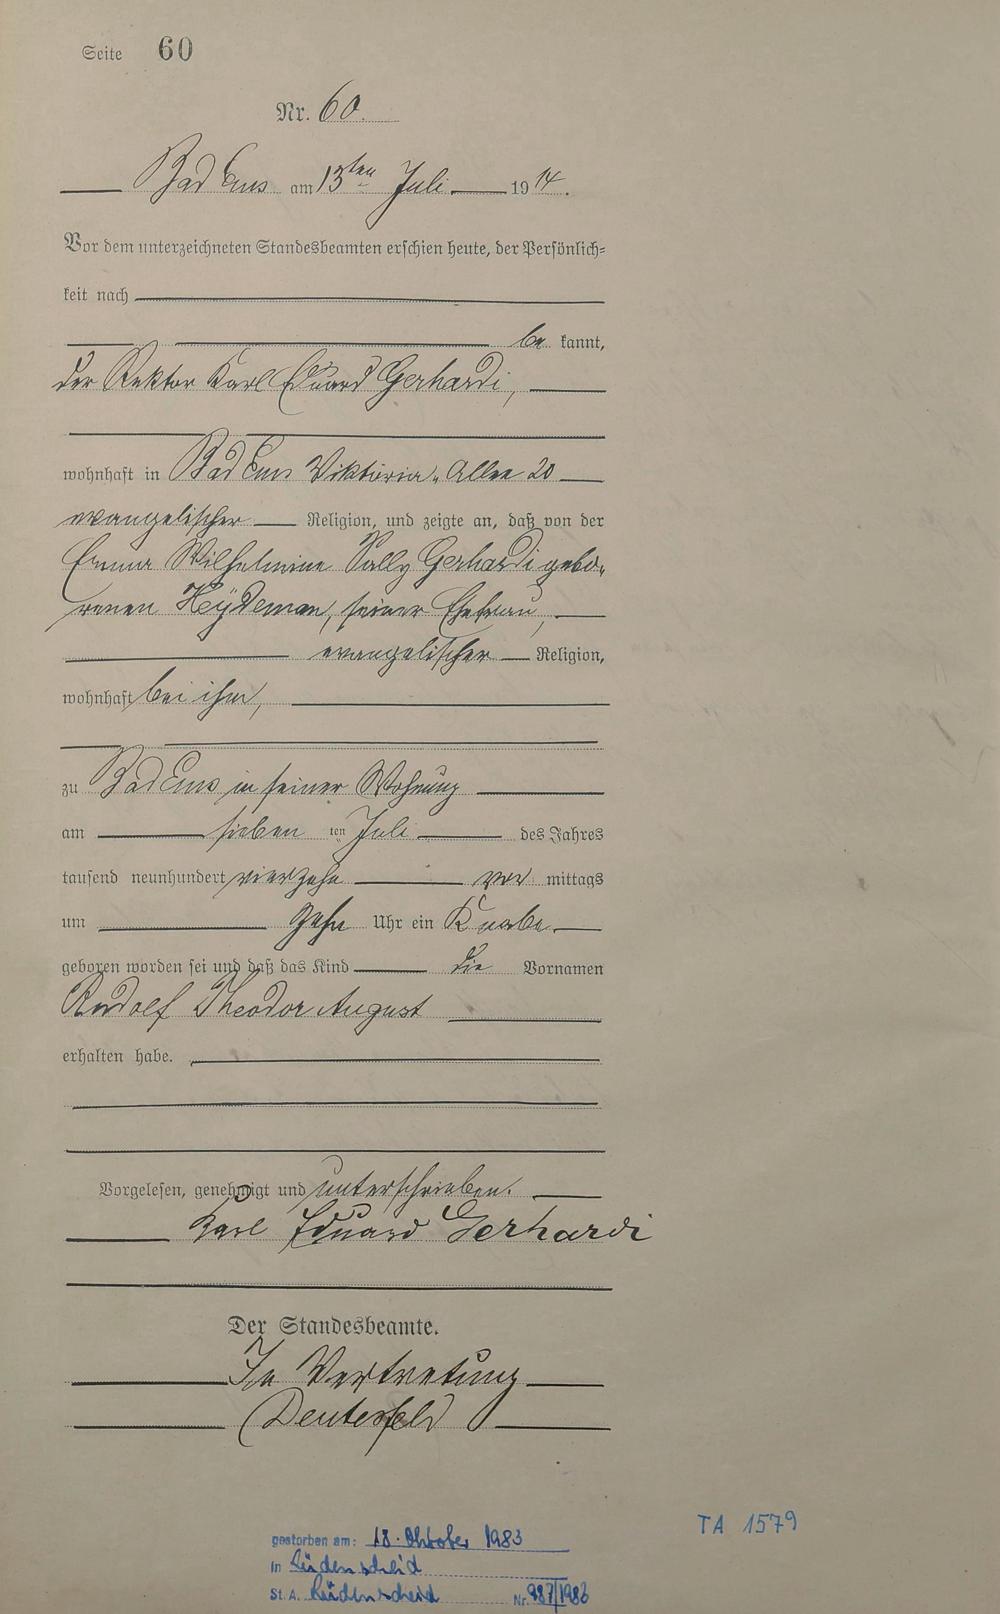 Seite 60
Nr. 60.
Bad Ems am 13ten Juli 1914.
Vor dem unterzeichneten Standesbeamten erschien heute, der Persönlich=
keit nach
be kannt,
der Rektor Karl Eduard Gerhardi,
wohnhaft in Bad Ems Viktoria-Allee 20
evangelischer Religion, und zeigte an, daß von der
Emma Wilhelmine Gerhardi gebo-
renen Heydeman, seiner Ehefrau,
evangelischer Religion,
wohnhaft bei ihm,
zu Bad Ems in seiner Wohnung
am sieben ten Juli des Jahres
tausend neunhundert vierzehn vor mittags
um zehn Uhr ein Knabe
geboren worden sei und daß das Kind die Vornamen
Rudolf Theodor August
erhalten habe.
Vorgelesen, genehmigt und unterschrieben.
Karl Eduard Gerhardi
Der Standesbeamte.
In Vertretung
TA 1579
gestorben am: 18. Oktober 1983
in Lüdenscheid
St. A. Lüdenscheid Nr. 987/1983